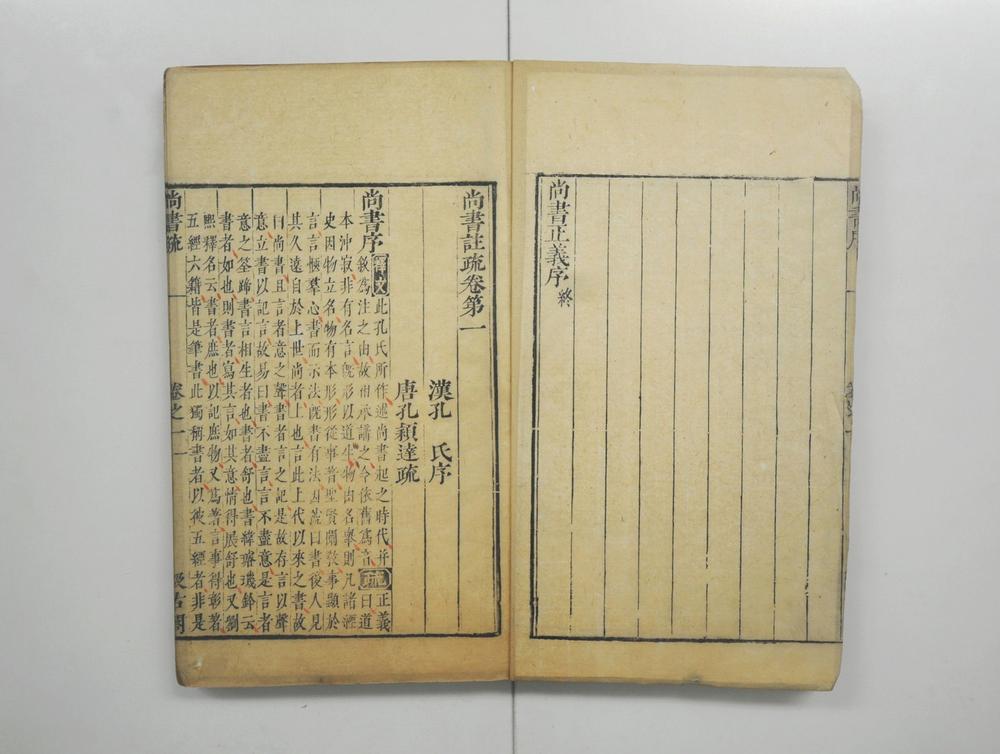 尚書序
尚書正義序 終
尚書註疏卷第一
漢孔 氏序
唐孔穎達疏
尚書序 釋文 此孔氏所作述尚書起之時代并
敘爲注之由故相承講之今依舊爲音 疏 正義曰道
本沖寂非有名言旣形以道生物由名舉則凡諸經
史因物立名物有本形形從事著聖賢闡敎事顯於
言言愜羣心書而示法旣書有法因號曰書後人見
其久遠自於上世尚者上也言此上代以來之書故
曰尚書且言者意之聲書者言之記是故存言以聲
意立書以記言故易曰書不盡言言不盡意是言者
意之筌蹄書言相生者也書者舒也書緯璿璣鈐云
書者如也則書者寫其言如其意情得展舒也又劉
熙釋名云書者庶也以記庶物又爲著言事得彰著
五經六籍皆是筆書此獨稱書者以彼五經者非是
尚書疏 卷之一 一 汲古閣